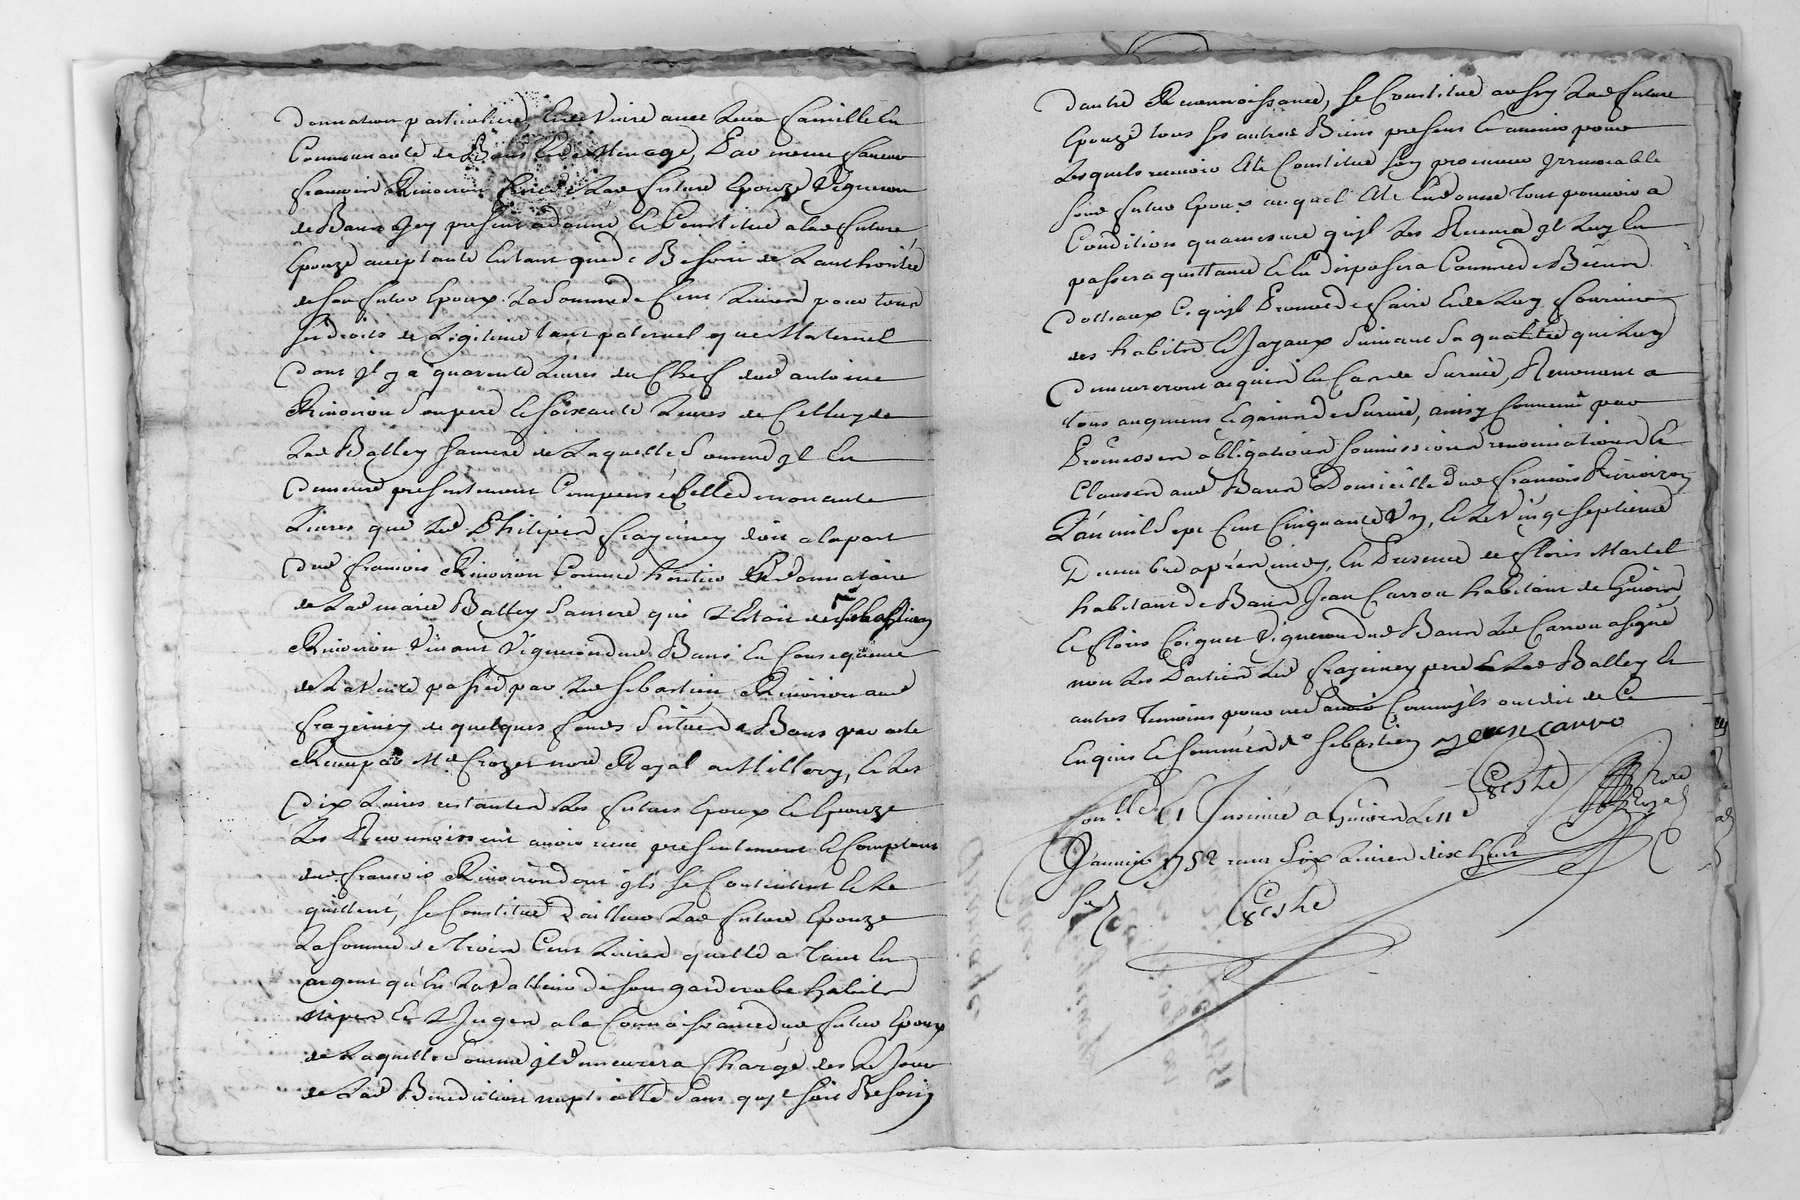 donnation particuliere, luy Vivre avec leur famille en
Communauté de Biens et de Menage, Par meme faveur
francois Rivoiron frere de Lad future Epouze Vigneron
de Bans Jcy present a donné et Constitué a lad future
Epouze acceptante Entant que de Besoin de L'authoritée
de son futur Epoux La Somme de Cent Livres pour tous
ses droits de Legitime tant paternel que Maternel
dont Jl y a quarente Livres du Chef dud antoine
Rivoiron Son pere et soixante Livres de Celluy de
Lad Balley Sa mere de Laquelle Somme Jl en
demeure presentement Compensé Celle de nonante
Livres que Led Philipes frayeiney doit a la part
dud francois Rivoiron Comme heritier et donnataire
de Lad marie Balley Sa mere qui L'Etoit de Sebastien
Rivoiron Vivant Vigneron dud Bans En Consequence
de La Vente passée par Led Sebastien Rivoiron aud
frayeiney de quelques fonds Situés a Bans par acte
Reçeu par Me Crozet nore Royal a Millery, et Les
dix Livres restantes Les futurs Epoux et Epouze
Les Reconnoissent avoir reçu presentement et Comptant
dud francois Rivoiron dont Jls se Contentent et Le
quittent, se Constitue d'ailleur Lad future Epouze
La Somme de Trois Cent Livres quelle a Tant En
argent qu'En La Valleur de Son garderobe habits
nipes et Linges a la Connoissance dud futur Epoux
de Laquelle Somme Jl demeurera Chargé des Le Jour
de Lad Benediction nuptialle Sans quil soit Besoin
d'autre Reconnoissance, se Constitue aussy Lad future
Epouze tous ses autres Biens presens et avenir pour
Lesquels recevoir Elle Constitue Son procureur Jrrevocable
Sond futur Epoux auquel Elle En donne tout pouvoir a
Condition quamesure quil Les Recevra Jl Luy En
passera quittance et En disposera Comme de Biens
dotteaux Ce quil Promet de faire et de Luy fournir
des habits et Joyaux Suivant Sa qualitée qui Luy
demeureront acquis En Cas de Survie, Renonçant a
tous augmens et gains de Survie, ainsy Convenu par
Promesses obligations Soumissions renonciations et
Clauses aud Bans Domicille dud francois Rivoiron
L'an mil Sept Cent Cinquante Un, et Le Vingt Septieme
Decembre apres midy, En Presence de floris Martel
habitant de Bans Jean Carrou habitant de Givors
et floris Coignet Vigneron dud Bans Led Carrou a signé
non Les Parties Led frayeiney pere et Lad Balley et
autres Temoins pour ne Sçavoir Comme Jls ont dit de Ce
Enquis et Sommés Sebastien Jean carro
Conlle et Jnsinué a Givors Le 11e
Janvier 1752 reçu Six Livres dix huit
Sols